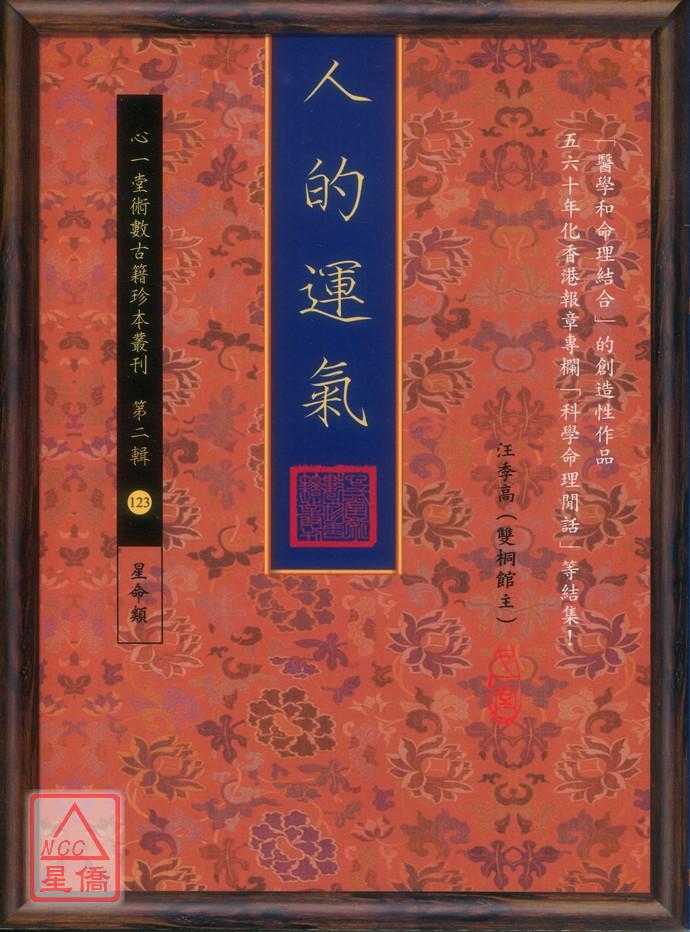 「醫學和命理結合」的創造性作品
五六十年化香港報章專欄「科學命理閒話」等結集！
汪季高（雙桐館主）
人的運氣
心一堂術數古籍珍本叢刊 第二輯
123
星命類
NCC
星僑